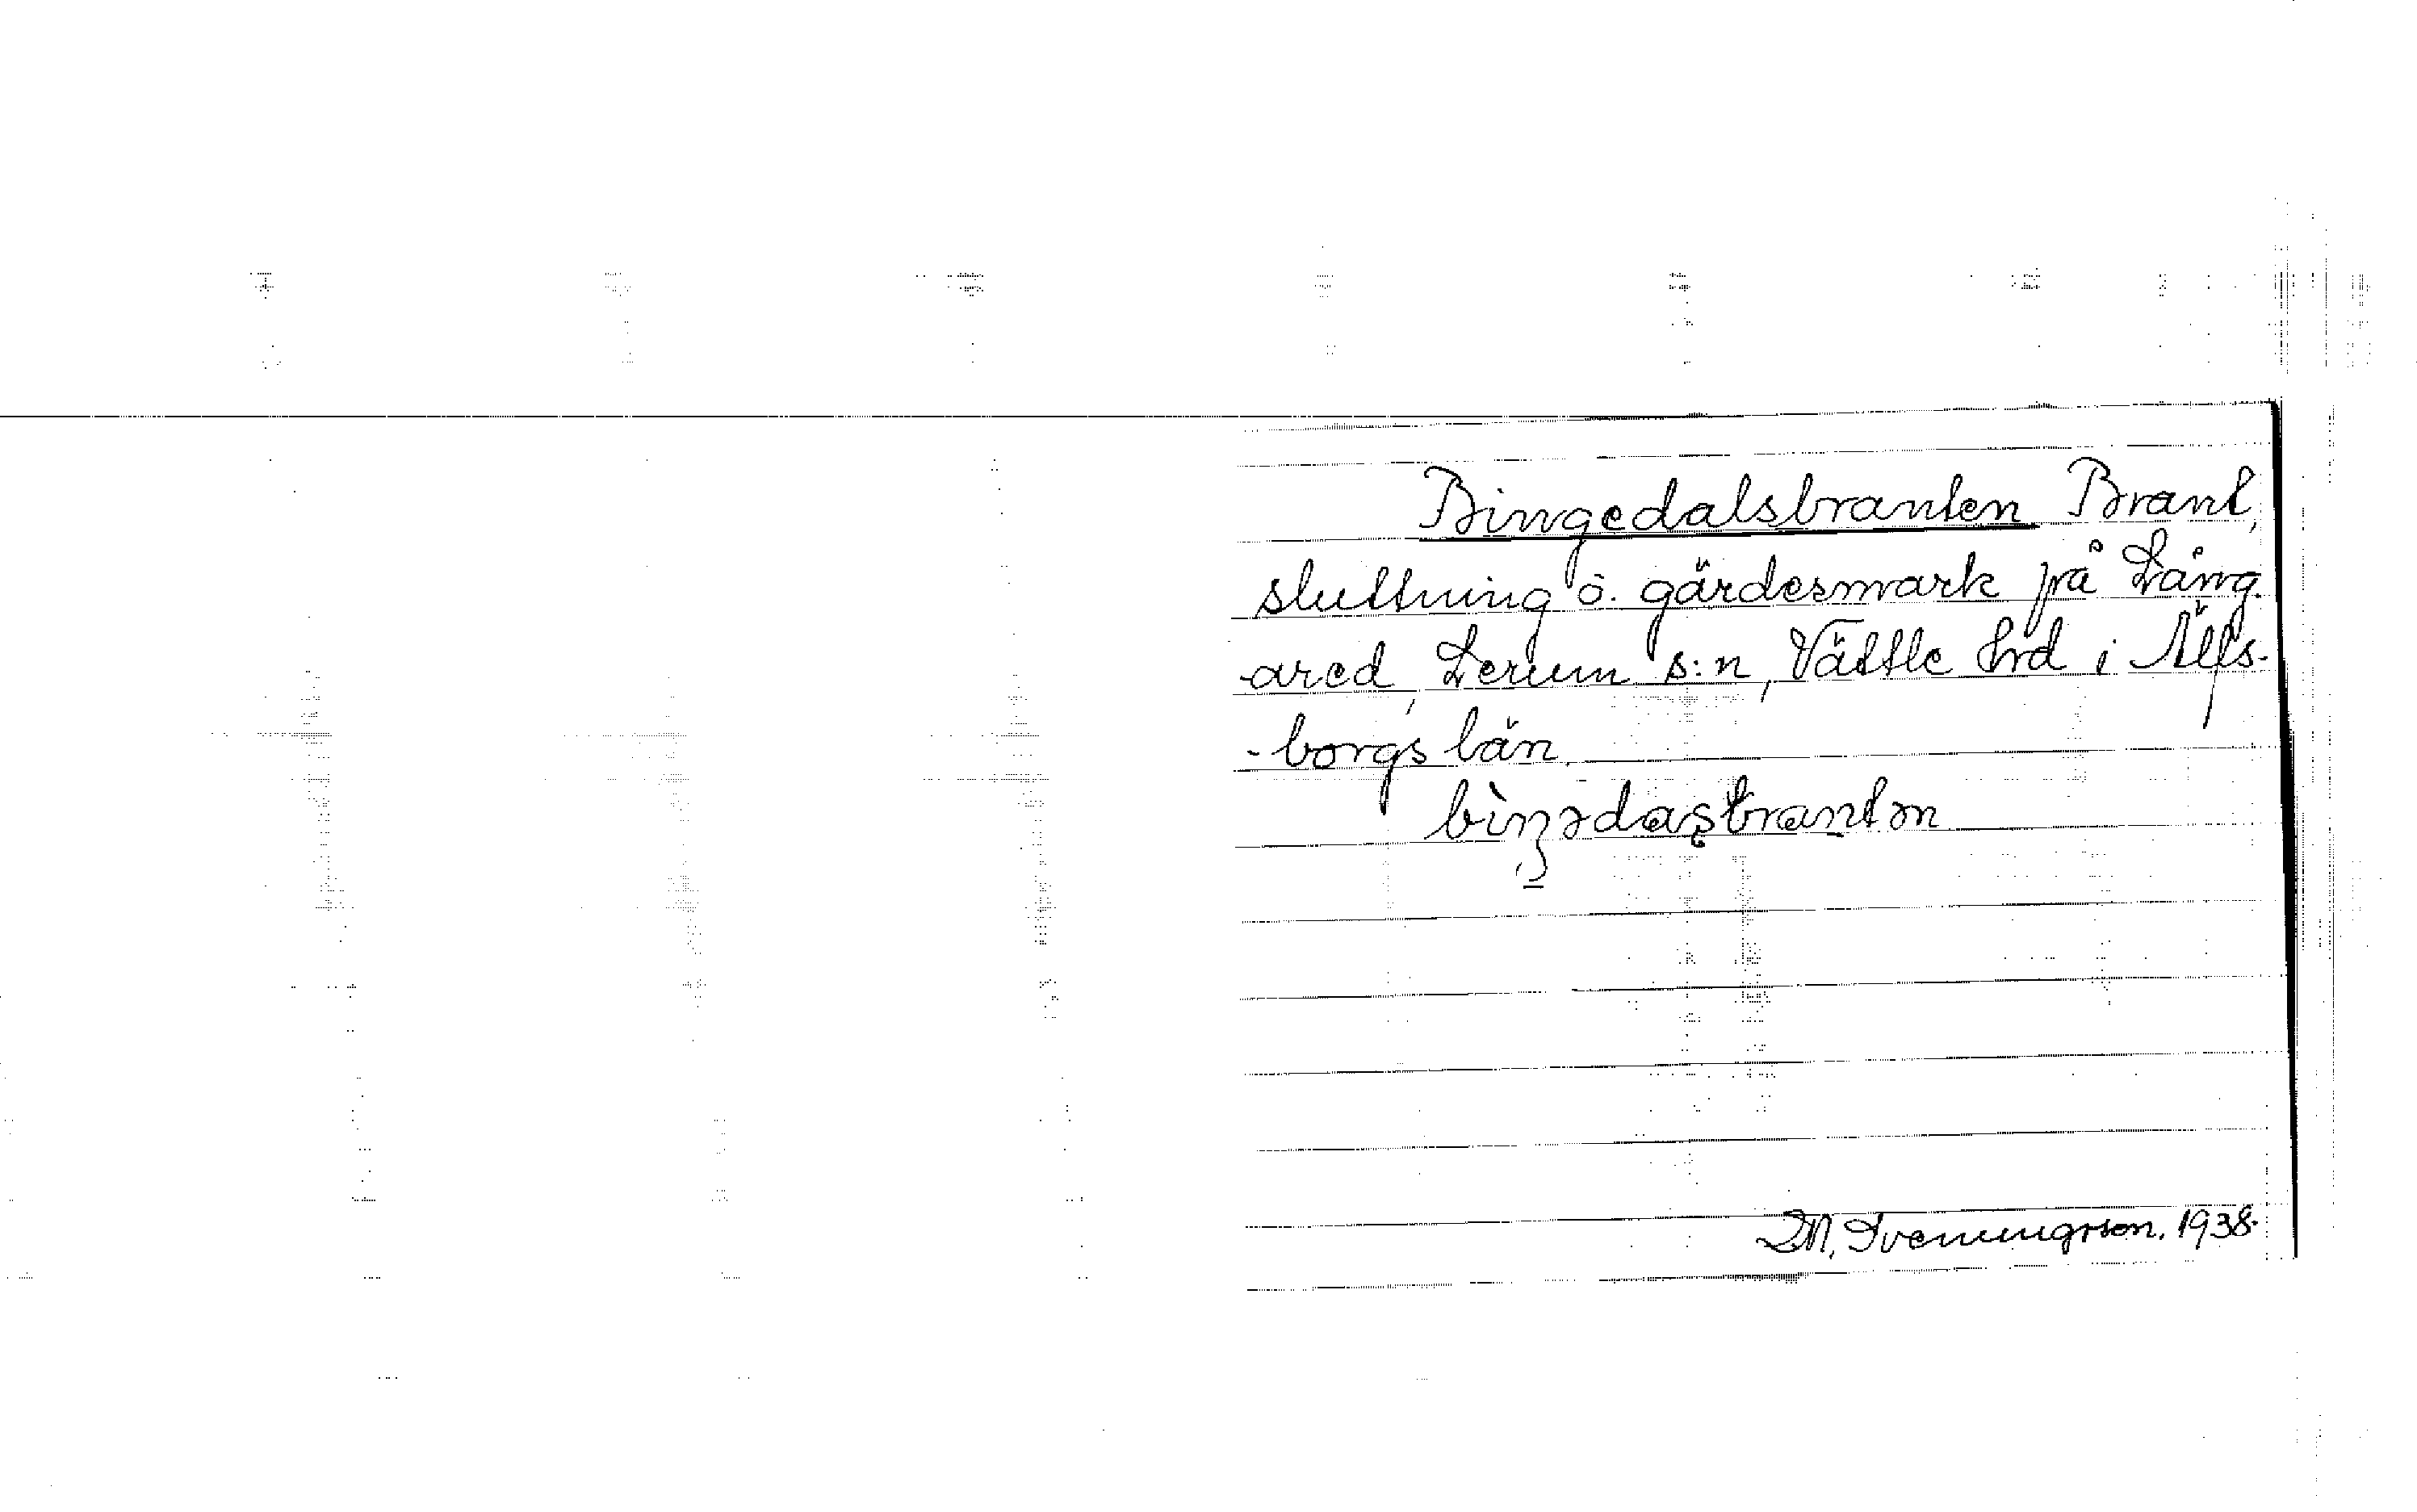 Bingedalsbranten Brant,
sluttning o. gärdesmark på Lång-
ared, Lerum s:n, Vättle hrd i Älfs-
-borgs län.
M. Svenungsson. 1938.